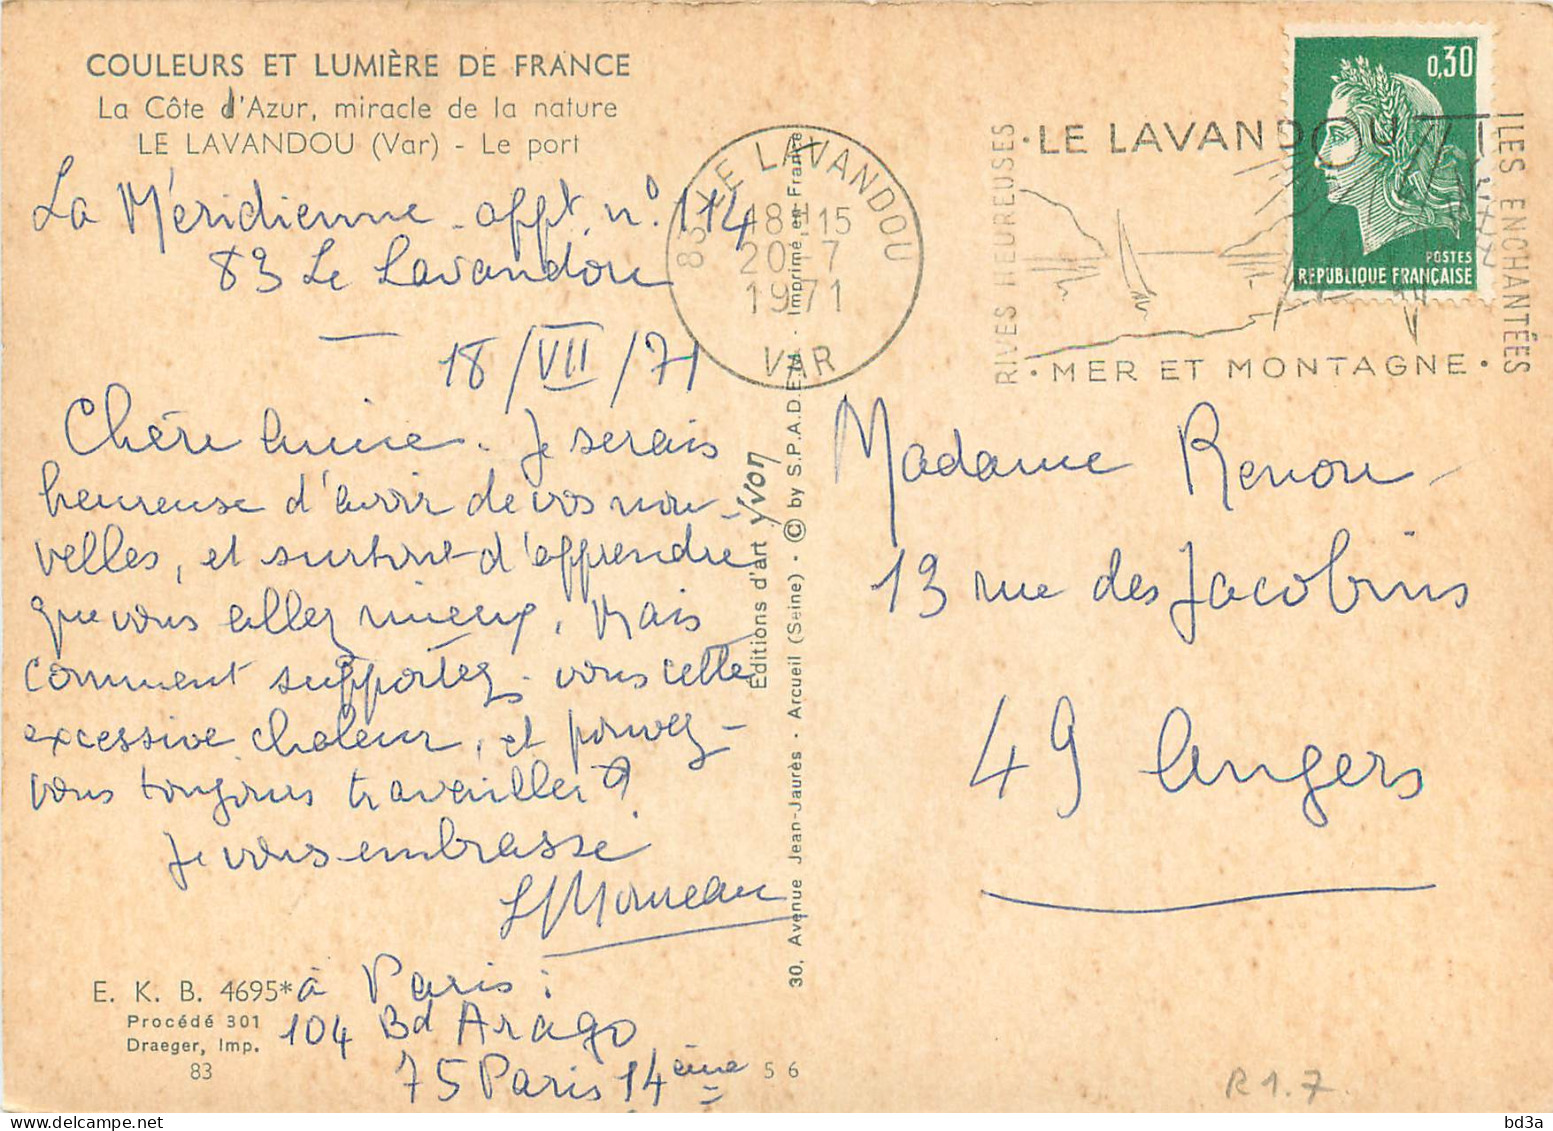 COULEURS ET LUMIÈRE DE FRANCE
La Côte d'Azur, miracle de la nature
LE LAVANDOU (Var) - Le port
La Méridienne - appt. n° 114
83 Le Lavandou
18/VII/71
Chère amie. Je serais
heureuse d'avoir de vos nou-
velles, et surtout d'apprendre
que vous allez mieux. Mais
comment supportez-vous cette
excessive chaleur, et pouvez-
vous toujours travailler ?
Je vous embrasse
Moureau
à Paris :
104 Bd Arago
75 Paris 14ème
E. K. B. 4695*
Procédé 301
Draeger, Imp.
83
5 6
Editions d'art Yvon
30, Avenue Jean-Jaurès - Arcueil (Seine) • © by S.P.A.D.E.M. • Imprimé en France
83 LE LAVANDOU
18H15
20-7
1971
VAR
• LE LAVANDOU
RIVES HEUREUSES
ILES ENCHANTÉES
• MER ET MONTAGNE •
0,30
POSTES
REPUBLIQUE FRANÇAISE
Madame Renou
13 rue des Jacobins
49 Angers
R 1.7
bd3a